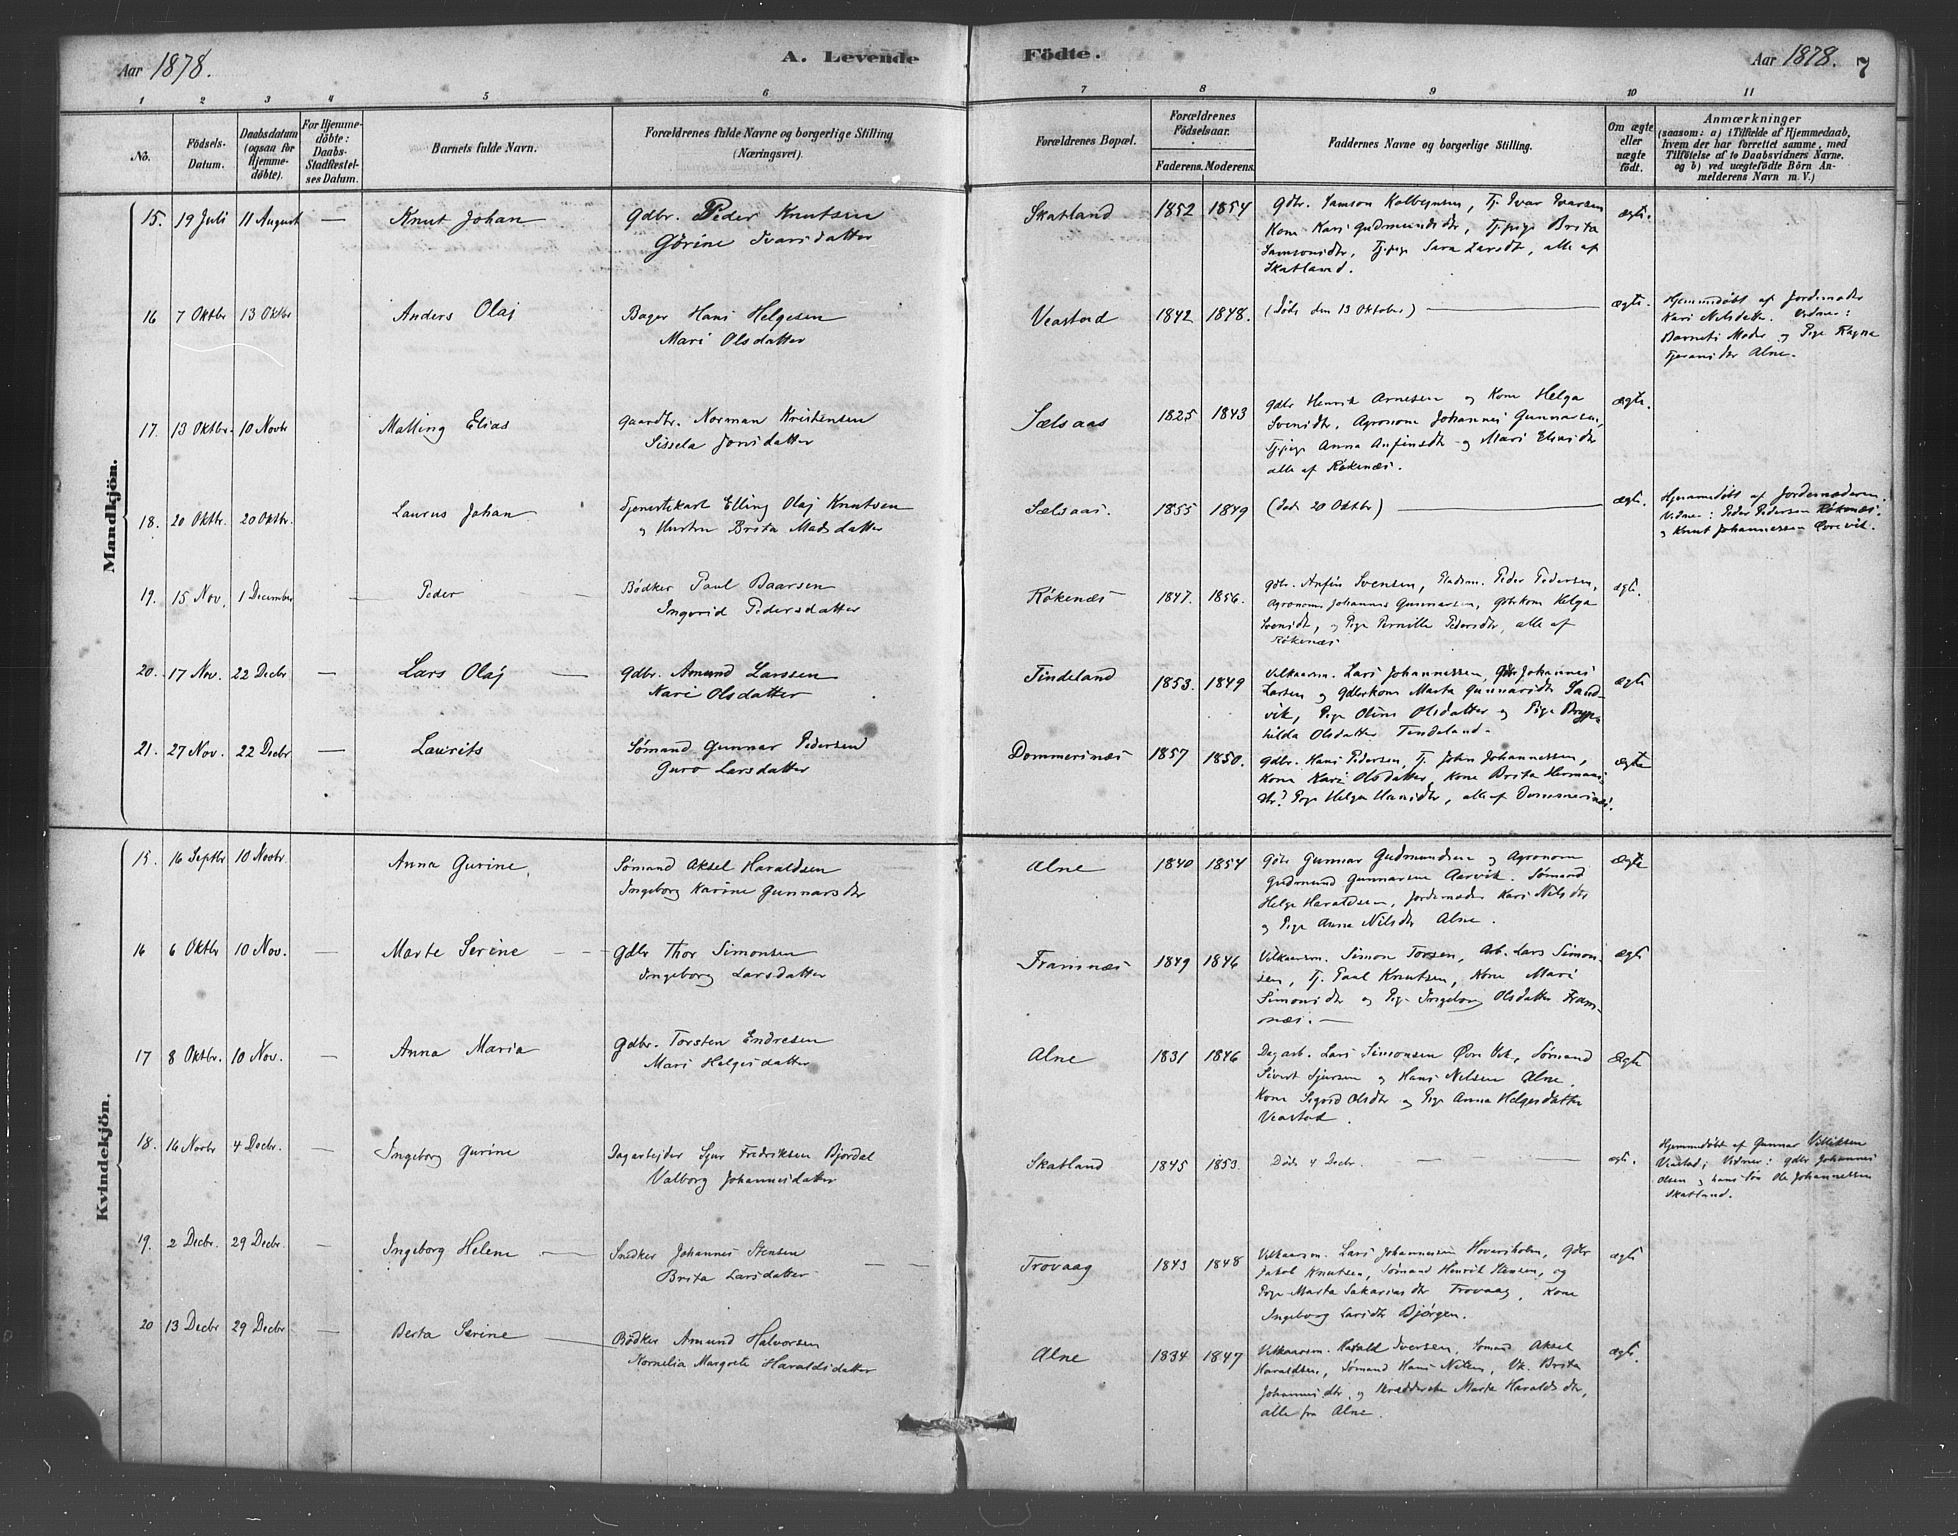 Aar 1878.
A. Levende
Födte.
Aar 1878.
7
1 2 3 4 5 6 7 8 9 10 11
No.
Födsels-Datum.
Daabsdatum (ogsaa for Hjemme-döbte).
For Hjemme-döbte: Daabs-Stadfæstel-ses Datum.
Barnets fulde Navn.
Forældrenes fulde Navne og borgerlige Stilling (Næringsvei).
Forældrenes Bopæl.
Forældrenes Födselsaar.
Faderens. Moderens.
Faddernes Navne og borgerlige Stilling.
Om ægte eller uægte födt.
Anmærkninger
(saasom: a) i Tilfælde af Hjemmedaab, hvem der har forrettet samme, med Tilföielse af to Daabsvidners Navne. og b) ved uægtefödte Börn An-melderens Navn m. V.)
Mandkjön.
15. 19 Juli 11 August — Knut Johan
Gdbr. Peder Knutsen
Gørine Ivarsdatter
Skatland 1852 1854
Gdbr. Samson Kolbeinsen, Tj. Ivar Ivarsen
Kone Kari Gudmundsdtr, Tj.pige Brita
Samsonsdtr, Tj.pige Sara Larsdt, alle af
Skatland.
ægte.
16 7 Oktbr 13 Oktbr Anders Olaj
Bager Hans Helgesen
Mari Olsdatter
Veastad 1842 1848.
(Døde den 13 Oktober)
ægte.
Hjemmedøbt af Jordemoder
Kari Nilsdatter. Vidner:
Barnets Moder og Pige Ragna
Alne.
17. 13 Oktbr. 10 Novbr Malling Elias
Gaardbr. Norman Kristensen
Sissela Jonsdatter
Sælsaas 1825 1843
Gdbr Henrik Arnesen og Kone Helga
Svensdtr. Agronom Johannes Gunnarsen,
Tj.pige Anna Anfinsdtr og Mari Eliasdtr
alle af Røkenæs.
ægte.
18. 20 Oktbr. 20 Oktbr. Laurus Johan
Tjenestekarl Elling Olaj Knutsen
og Hustru Brita Madsdatter
Sælsaas. 1855 1849
(Død 20 Oktbr)
ægte
Hjemmedøbt af Jordemoderen.
Vidner: Peder Pedersen Røkenæs.
og Knut Johannessen Øvrevik.
19. 15 Nov. 1 December — Peder —
Bødker Paul Baarsen
Ingerid Pedersdatter
Røkenæs 1847. 1856.
Gdbr. Anfin Svensen, Pladsm. Peder Pedersen,
Agronom Johannes Gunnarsen, Gdbrkone Helga
Svensdt, og Pige Pernille Pedersdtr, alle af
Røkenæs
ægt.
20. 17 Nov. 22 Decbr — Lars Olaj —
Gdbr. Amund Larssen
Kari Olsdatter
Tindeland 1853. 1849
Velkaarsm. Lars Johannessen, Gdbr Johannes
Larsen og Gdbrkone Marta Gunnarsdtr Sand-
vik, Pige Oline Olsdatter og Pige
hilda Olsdatter Tindeland.
ægte
21. 27 Nov. 22 Decbr — Laurits
Sømand Gunnar Pedersen
Guro Larsdatter
Dommersnæs 1857 1850.
Gdbr. Hans Pedersen, Tj. John Johannessen,
Kone Kari Olsdatter, Kone Brita Hermans-
dtr, Pige Helga Hansdtr, alle af Dommersnæs.
ægte
Kvindekjön.
15. 16 Septbr 10 Novbr. Anna Gurine.
Sømand Aksel Haraldsen
Ingeborg Karine Gunnarsdtr
Alne 1840 1854
Gdbr Gunnar Gudmundsen og Agronom
Gudmund Gunnarsen Aarvik. Sømand
Helge Haraldsen, Jordemoder Kari Nilsdtr
og Pige Anna Nilsdtr Alne.
ægte
16 6 Oktbr 10 Nov. — Marte Serine — —
Gdbr Thor Simonsen
Ingeborg Larsdatter
Framnæs 1849 1846
Velkaarsm. Simon Torsen, Arb. Lars Simon-
sen, Tj. Paul Knutsen, Kone Mari
Simonsdtr og Pige Ingeborg Olsdatter Fram-
næs. —
ægte
17 8 Oktbr. 10 Nov. — Anna Maria
Gdbr. Torsten Endresen
Mari Helgesdatter
Alne 1831 1846
Dagarb. Lars Simonsen Øvre Vik, Sømand
Sivert Sjursen og Hans Nelsen Alne.
Kone Sigrid Olsdtr og Pige Anna Helgesdatter
Veastad.
Ægte
18. 16 Novbr 4 Decbr. — Ingeborg Gurine
Dagarbejder Sjur Fredriksen Bjordal
Valborg Johannesdatter
Skatland 1845 1853.
Døde 4 Decbr. — — —
ægte.
Hjemmedøbt af Gunnar Villiksen
Veastad; Vidner: Gdbr Johannes
Olsen og hans Søn Ole Johannessen
Skatland.
19. 2 Decbr. 29 Decbr. — Ingeborg Helene —
Snedker Johannes Stensen
Brita Larsdatter — —
Trovaag 1843 1848
Velkaarsm. Lars Johannessen Hoversholm, Gdbr
Jakob Knutsen, Sømand Henrik Hansen, og
Pige Marta Sakariasdtr Trovaag, Kone
Ingeborg Larsdtr Bjørgen.
ægte
20 13 Decbr 29 Decbr — Berta Serine —
Bødker Amund Halvorsen
Kornelia Margrete Haraldsdatter
Alne 1834 1847
Velkaarsm. Harald Iversen, Sømand Aksel
Haraldsen, Sømand Hans Nilsen, Vk. Brita
Johannesdtr, og Marta Haraldsdtr,
alle fra Alne.
ægte.